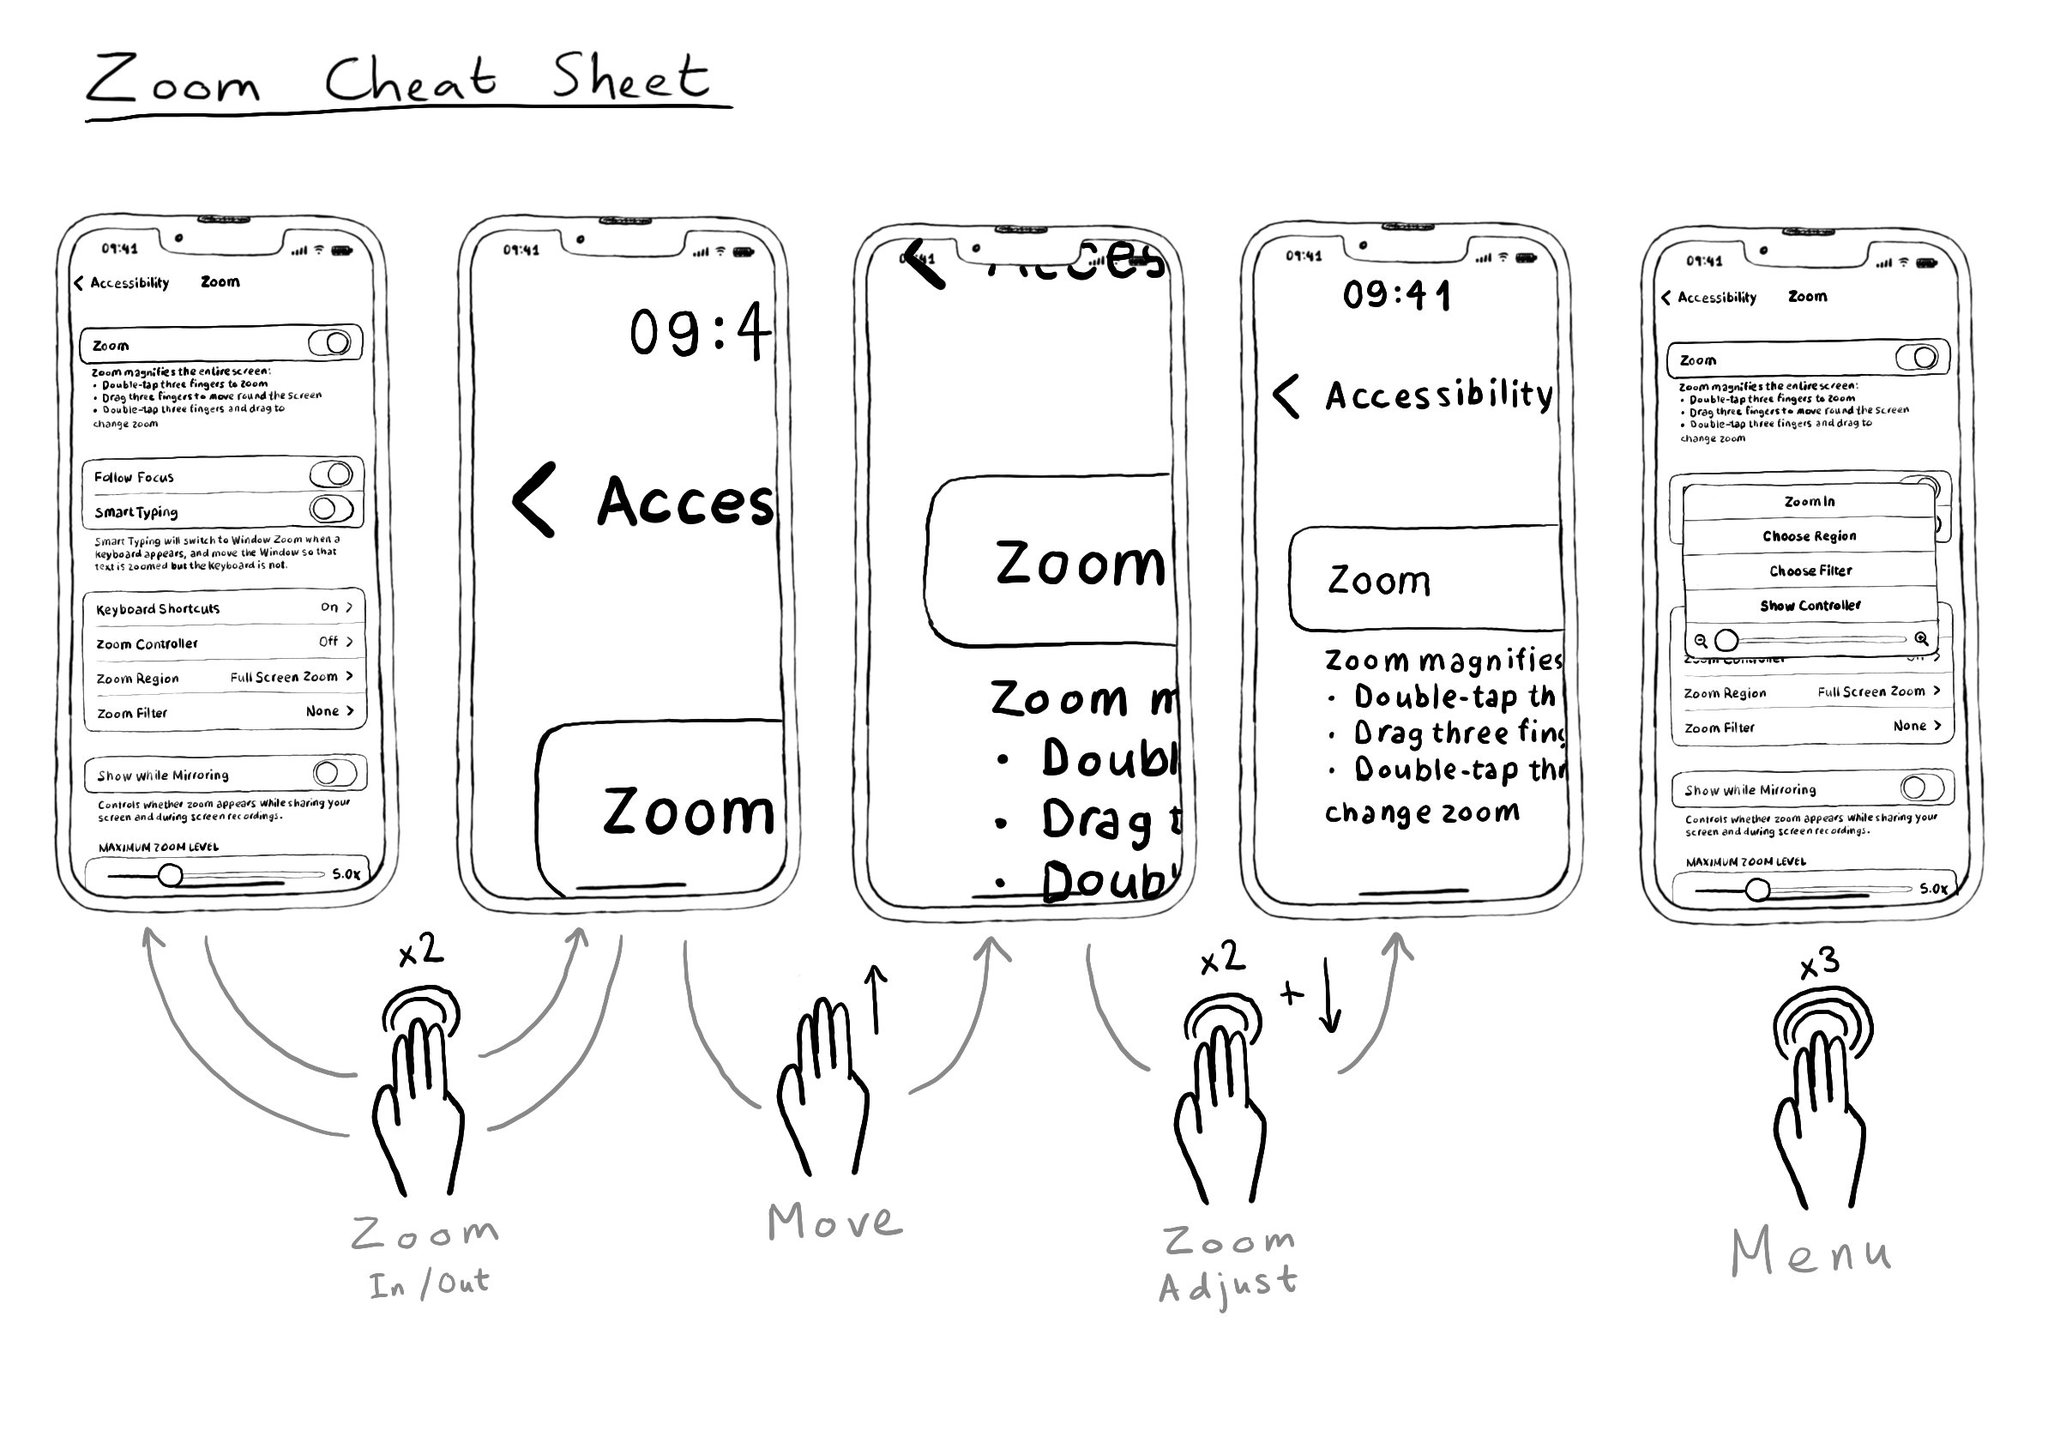 Zoom Cheat Sheet
09:41
< Accessibility Zoom
Zoom
Zoom magnifies the entire screen:
• Double-tap three fingers to zoom
• Drag three fingers to move round the screen
• Double-tap three fingers and drag to
change zoom
Follow Focus
Smart Typing
Smart Typing will switch to Window Zoom when a
Keyboard appears, and move the Window so that
text is zoomed but the Keyboard is not.
Keyboard Shortcuts On >
Zoom Controller Off >
Zoom Region Full Screen Zoom >
Zoom Filter None >
Show While Mirroring
Controls whether zoom appears while sharing your
screen and during screen recordings.
MAXIMUM ZOOM LEVEL
5.0x
09:41
09:4
< Acces
Zoom
41
< Acces
Zoom
Zoom m
• Doubl
• Drag t
• Doub
09:41
09:41
< Accessibility
Zoom
Zoom magnifies
• Double-tap th
• Drag three fing
• Double-tap thr
change zoom
09:41
< Accessibility Zoom
Zoom
Zoom magnifies the entire screen:
• Double-tap three fingers to zoom
• Drag three fingers to move round the screen
• Double-tap three fingers and drag to
change zoom
Zoom In
Choose Region
Choose Filter
Show Controller
Zoom Controller Off >
Zoom Region Full Screen Zoom >
Zoom Filter None >
Show While Mirroring
Controls whether zoom appears while sharing your
screen and during screen recordings.
MAXIMUM ZOOM LEVEL
5.0x
x2
Zoom
In/Out
Move
x2
+
Zoom
Adjust
x3
Menu